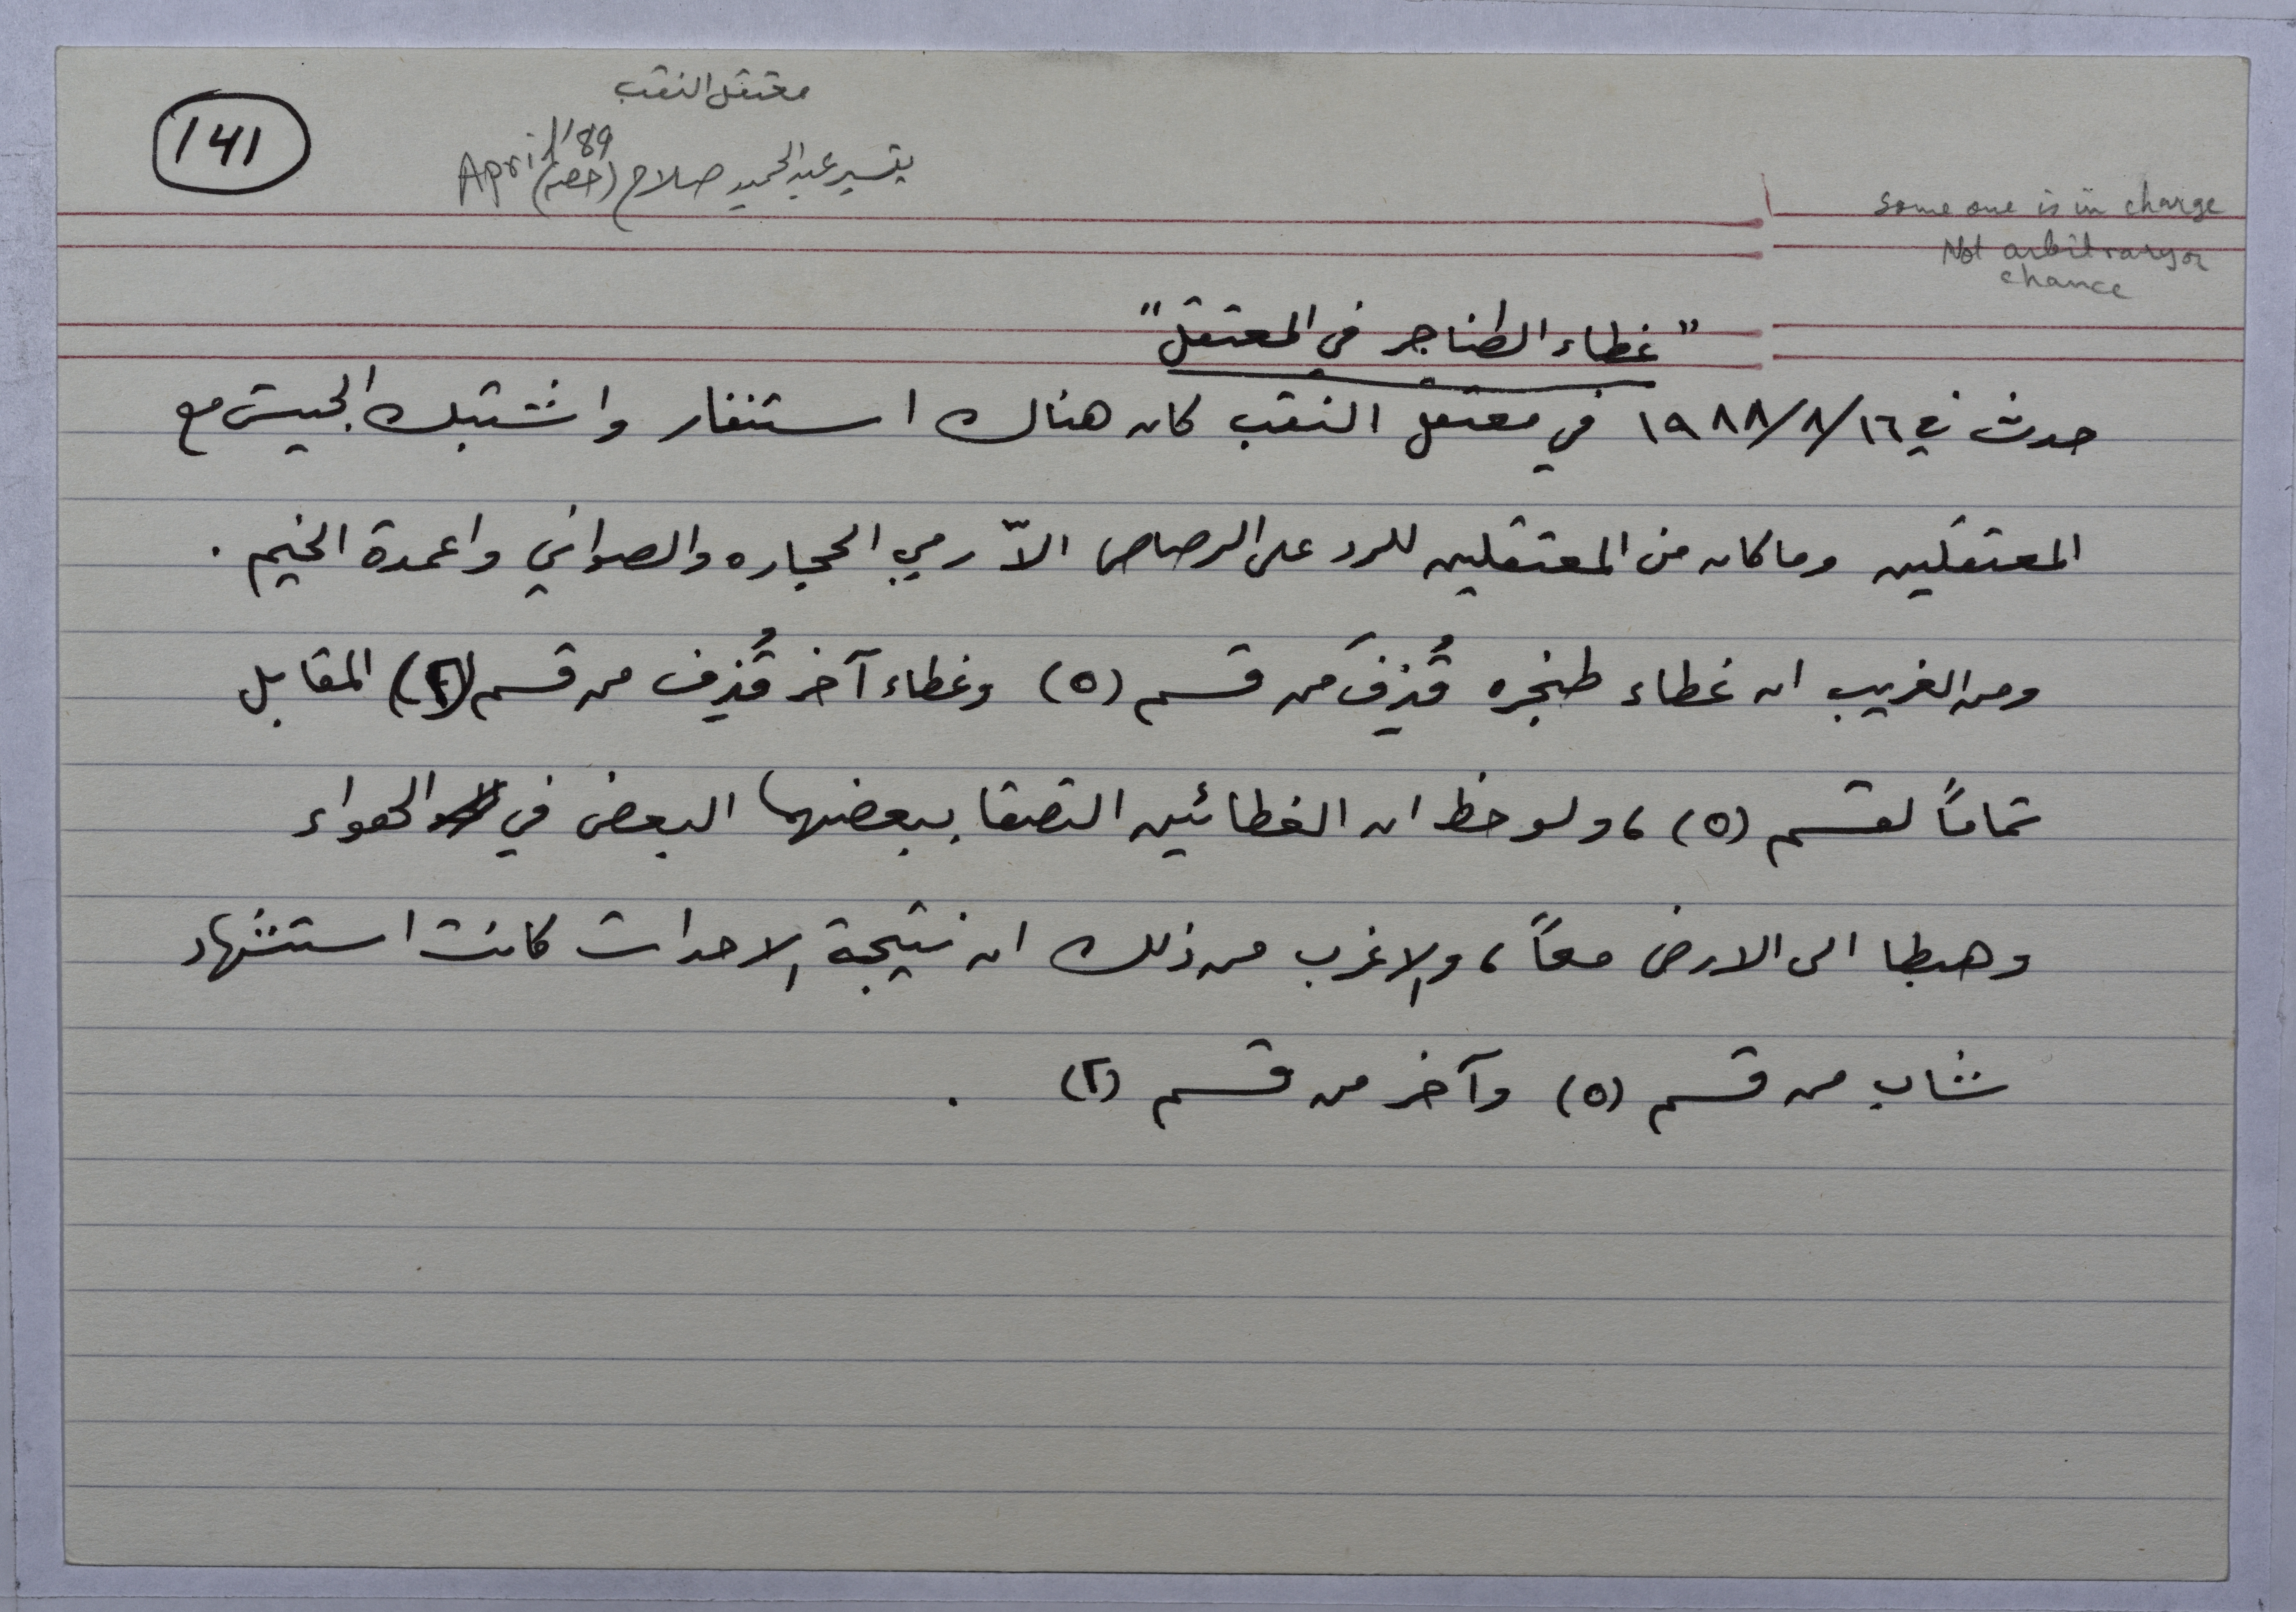 معتقل النقب
141
April '89
تيسير عبد الحميد صلاح
Some one is in charge
Not arbitrary or
chance
"غطاء الطناجر في المعتقل"
حدث في ١٩٨٨/٨/١٦ في معتقل النقب كان هناك استنفار واشتبك الجيش مع
المعتقلين وما كان من المعتقلين للرد على الرصاص الاّ رمي الحجاره والصواني واعمدة الخيم .
ومن الغريب ان غطاء طنجره قُذِفَ من قسم (٥) وغطاء آخر قُذِف من قسم (٢) المقابل
تماماً لقسم (٥) ، ولوحظ ان الغطائين التصقا ببعضهما البعض في الهواء
وهبطا الى الارض معاً ، والاغرب من ذلك ان نتيجة الاحداث كانت استشهاد
شاب من قسم (٥) وآخر من قسم (٢) .